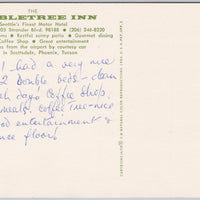 THE
BLETREE INN
Seattle's Finest Motor Hotel
05 Strander Blvd. 98188 • (206) 246-8220
ms • Restful sunny patio • Gourmet dining
Coffee Shop • Great entertainment
s from the airport by courtesy car
in Scottsdale, Phoenix, Tucson
I had a very nice
2 Double beds - clean
each day! Coffee Shop,
meals. Coffee Tree - nice
od entertainment &
nce floor!